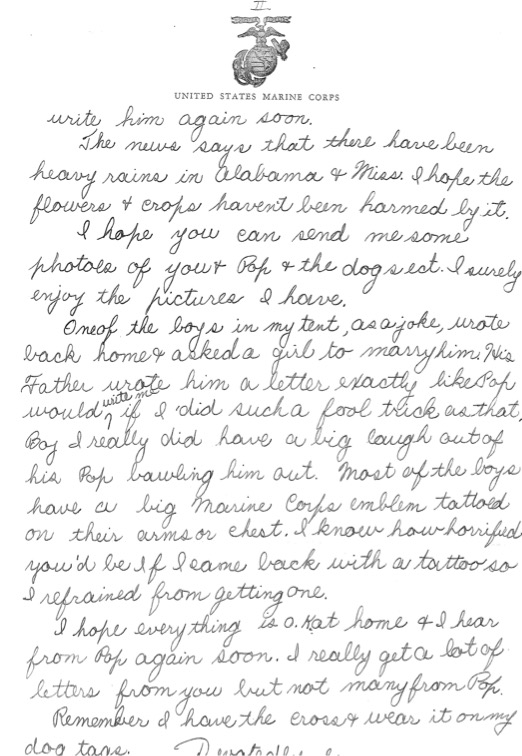 II
UNITED STATES MARINE CORPS
write him again soon.
The news says that there have been
heavy rains in Alabama & Miss. I hope the
flowers & crops havent been harmed by it.
I hope you can send me some
photoes of you & Pop & the dogs ect. I surely
enjoy the pictures I have.
One of the boys in my tent, as a joke, wrote
back home & asked a girl to marry him. His
Father wrote him a letter exactly like Pop
would write me if I did such a fool trick as that,
Boy I really did have a big laugh out of
his Pop bawling him out. Most of the boys
have a big Marine Corps emblem tattoed
on their arms or chest. I know how horrified
you'd be If I came back with a tattoo so
I refrained from getting one.
I hope everything is O.K at home & I hear
from Pop again soon. I really get a lot of
letters from you but not many from Pop.
Remember I have the cross & wear it on my
dog tags. Devotedly